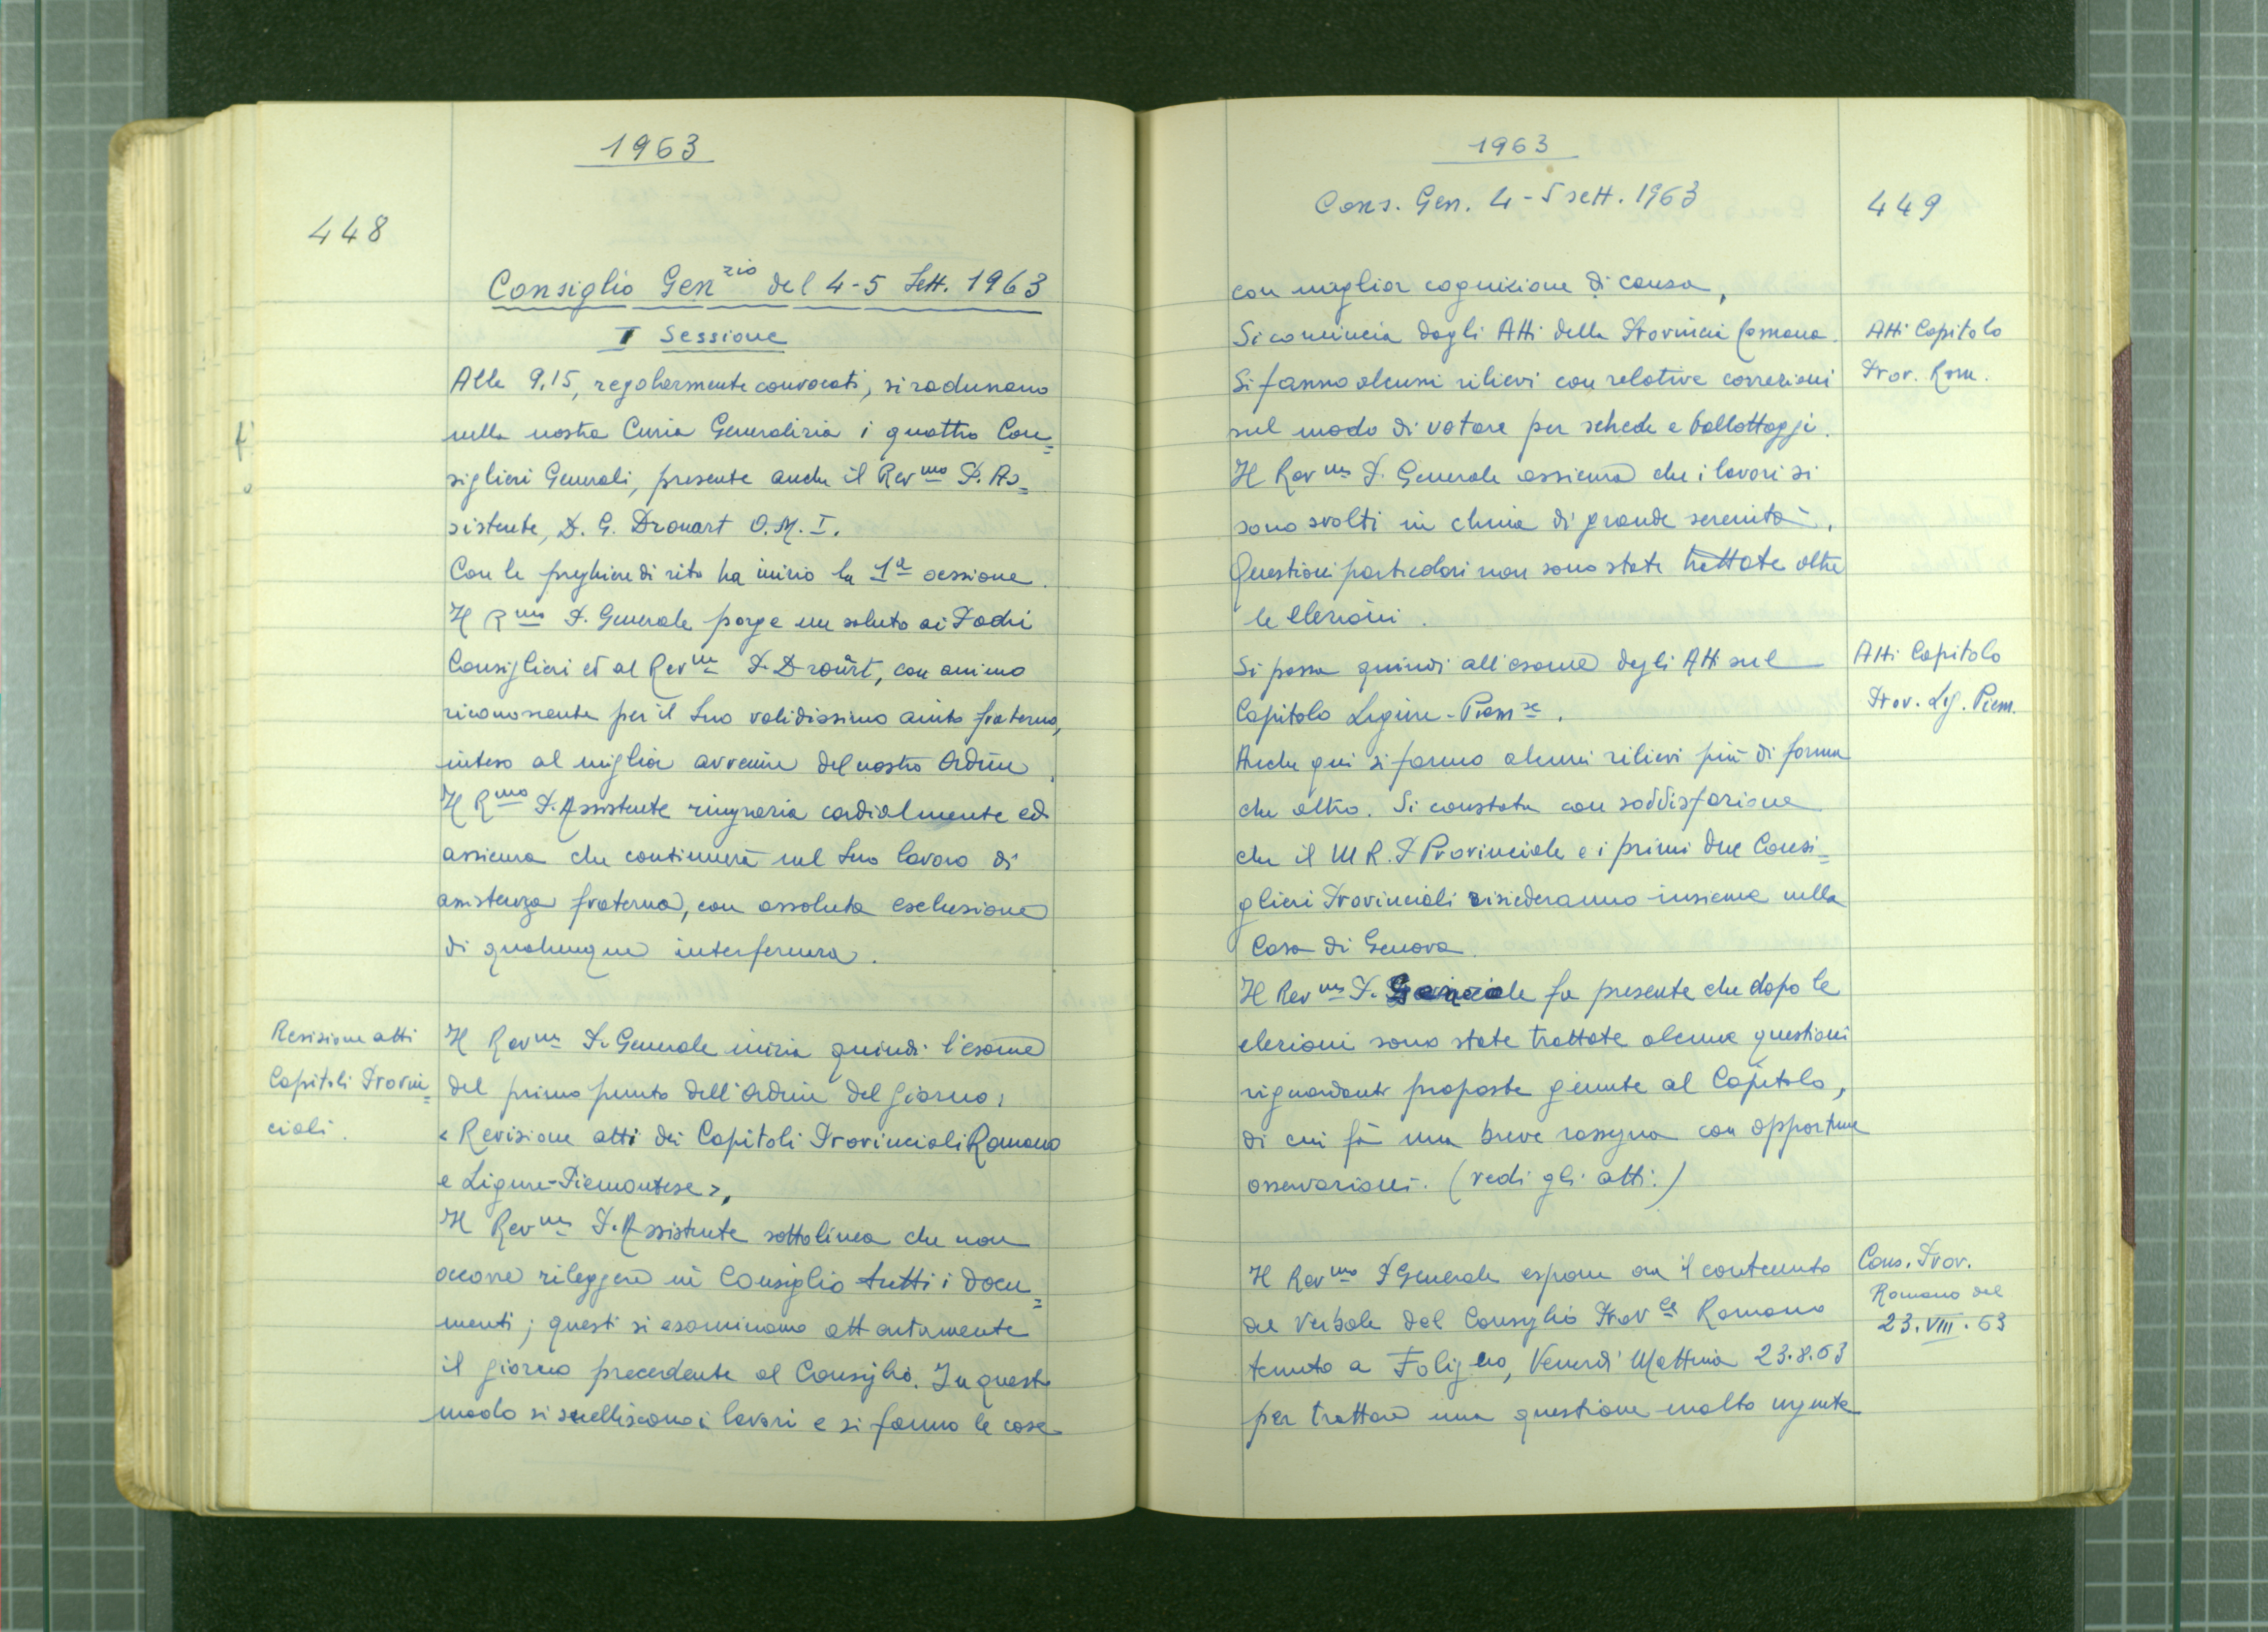 1963
448
Consiglio Gen.zio del 4-5 Sett. 1963
I Sessione
Alle 9,15, regolarmente convocati, si radunano
nella nostra Curia Generalizia i quattro Con=
siglieri Generali, presente anche il Rev.mo P. As=
sistente, P. G. Drouart O.M.I.
Con le preghiere di rito ha inizio la 1a sessione.
Il R.mo P. Generale porge un saluto ai Padri
Consiglieri ed al Rev.mo P. Drouart, con animo
riconoscente per il Suo validissimo aiuto fraterno,
inteso al miglior avvenire del nostro Ordine.
Il R.mo P. Assistente ringrazia cordialmente ed
assicura che continuerà nel Suo lavoro di
assistenza fraterna, con assoluta esclusione
di qualunque interferenza.
Revisione atti
Capitoli Provin=
ciali.
Il Rev.mo P. Generale inizia quindi l'esame
del primo punto dell'Ordine del giorno:
« Revisione atti dei Capitoli Provinciali Romano
e Ligure-Piemontese ».
Il Rev.mo P. Assistente sottolinea che non
occorre rileggere in Consiglio tutti i docu=
menti; questi si esaminano attentamente
il giorno precedente al Consiglio. In questo
modo si snelliscono i lavori e si fanno le cose
1963
Cons. Gen. 4-5 sett. 1963
449
con miglior cognizione di causa.
Si comincia dagli Atti della Provincia Romana.
Atti Capitolo
Prov. Rom.
Si fanno alcuni rilievi con relative correzioni
sul modo di votare per schede e ballottaggi.
Il Rev.mo P. Generale assicura che i lavori si
sono svolti in clima di grande serenità.
Questioni particolari non sono state trattate oltre
le elezioni.
Si passa quindi all'esame degli Atti sul
Capitolo Ligure-Piem.se.
Atti Capitolo
Prov. Lig. Piem.
Anche qui si fanno alcuni rilievi più di forma
che altro. Si constata con soddisfazione
che il M R. P Provinciale e i primi due Consi=
glieri Provinciali risiederanno insieme nella
Casa di Genova.
Il Rev.mo P. Generale fa presente che dopo le
elezioni sono state trattate alcune questioni
riguardanti proposte giunte al Capitolo,
di cui fà una breve rassegna con opportune
osservazioni. (vedi gli atti.)
Il Rev.mo P Generale espone ora il contenuto
del Verbale del Consiglio Prov.le Romano
tenuto a Foligno, Venerdì Mattina 23.8.63
per trattare una questione molto urgente
Cons. Prov.
Romano del
23.VIII.63